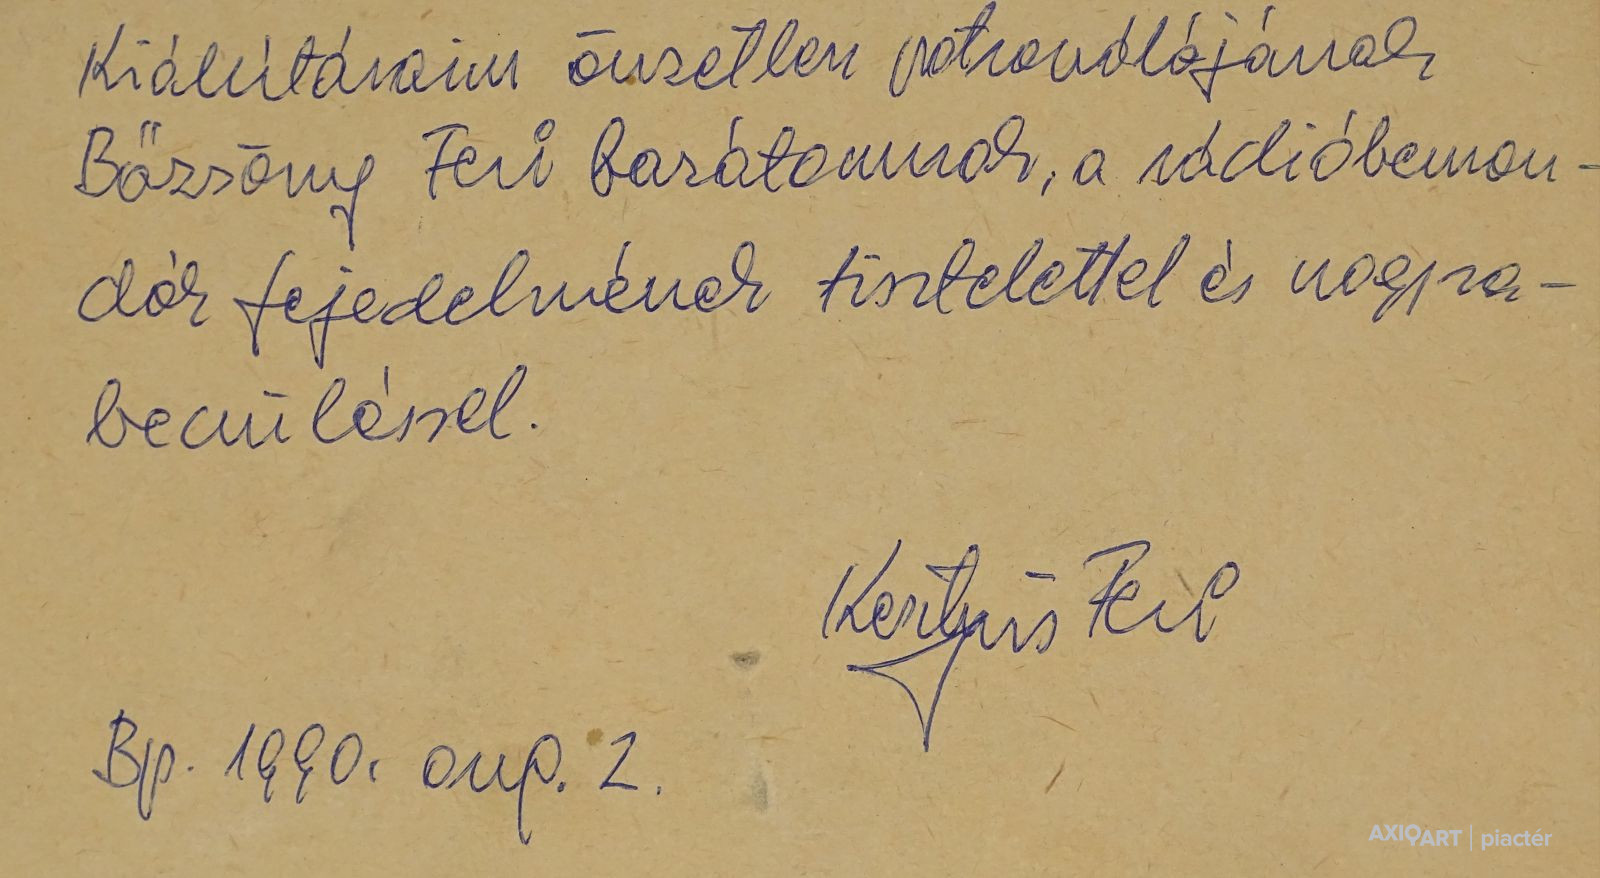 Kiállításaim önzetlen patronálójának
Bőzsöny Feri barátomnak, a rádióbemon-
dók fejedelmének tisztelettel és nagyra-
becsüléssel.
Kertyús Feri
Bp. 1990. aug. 2.
AXIOART | piactér